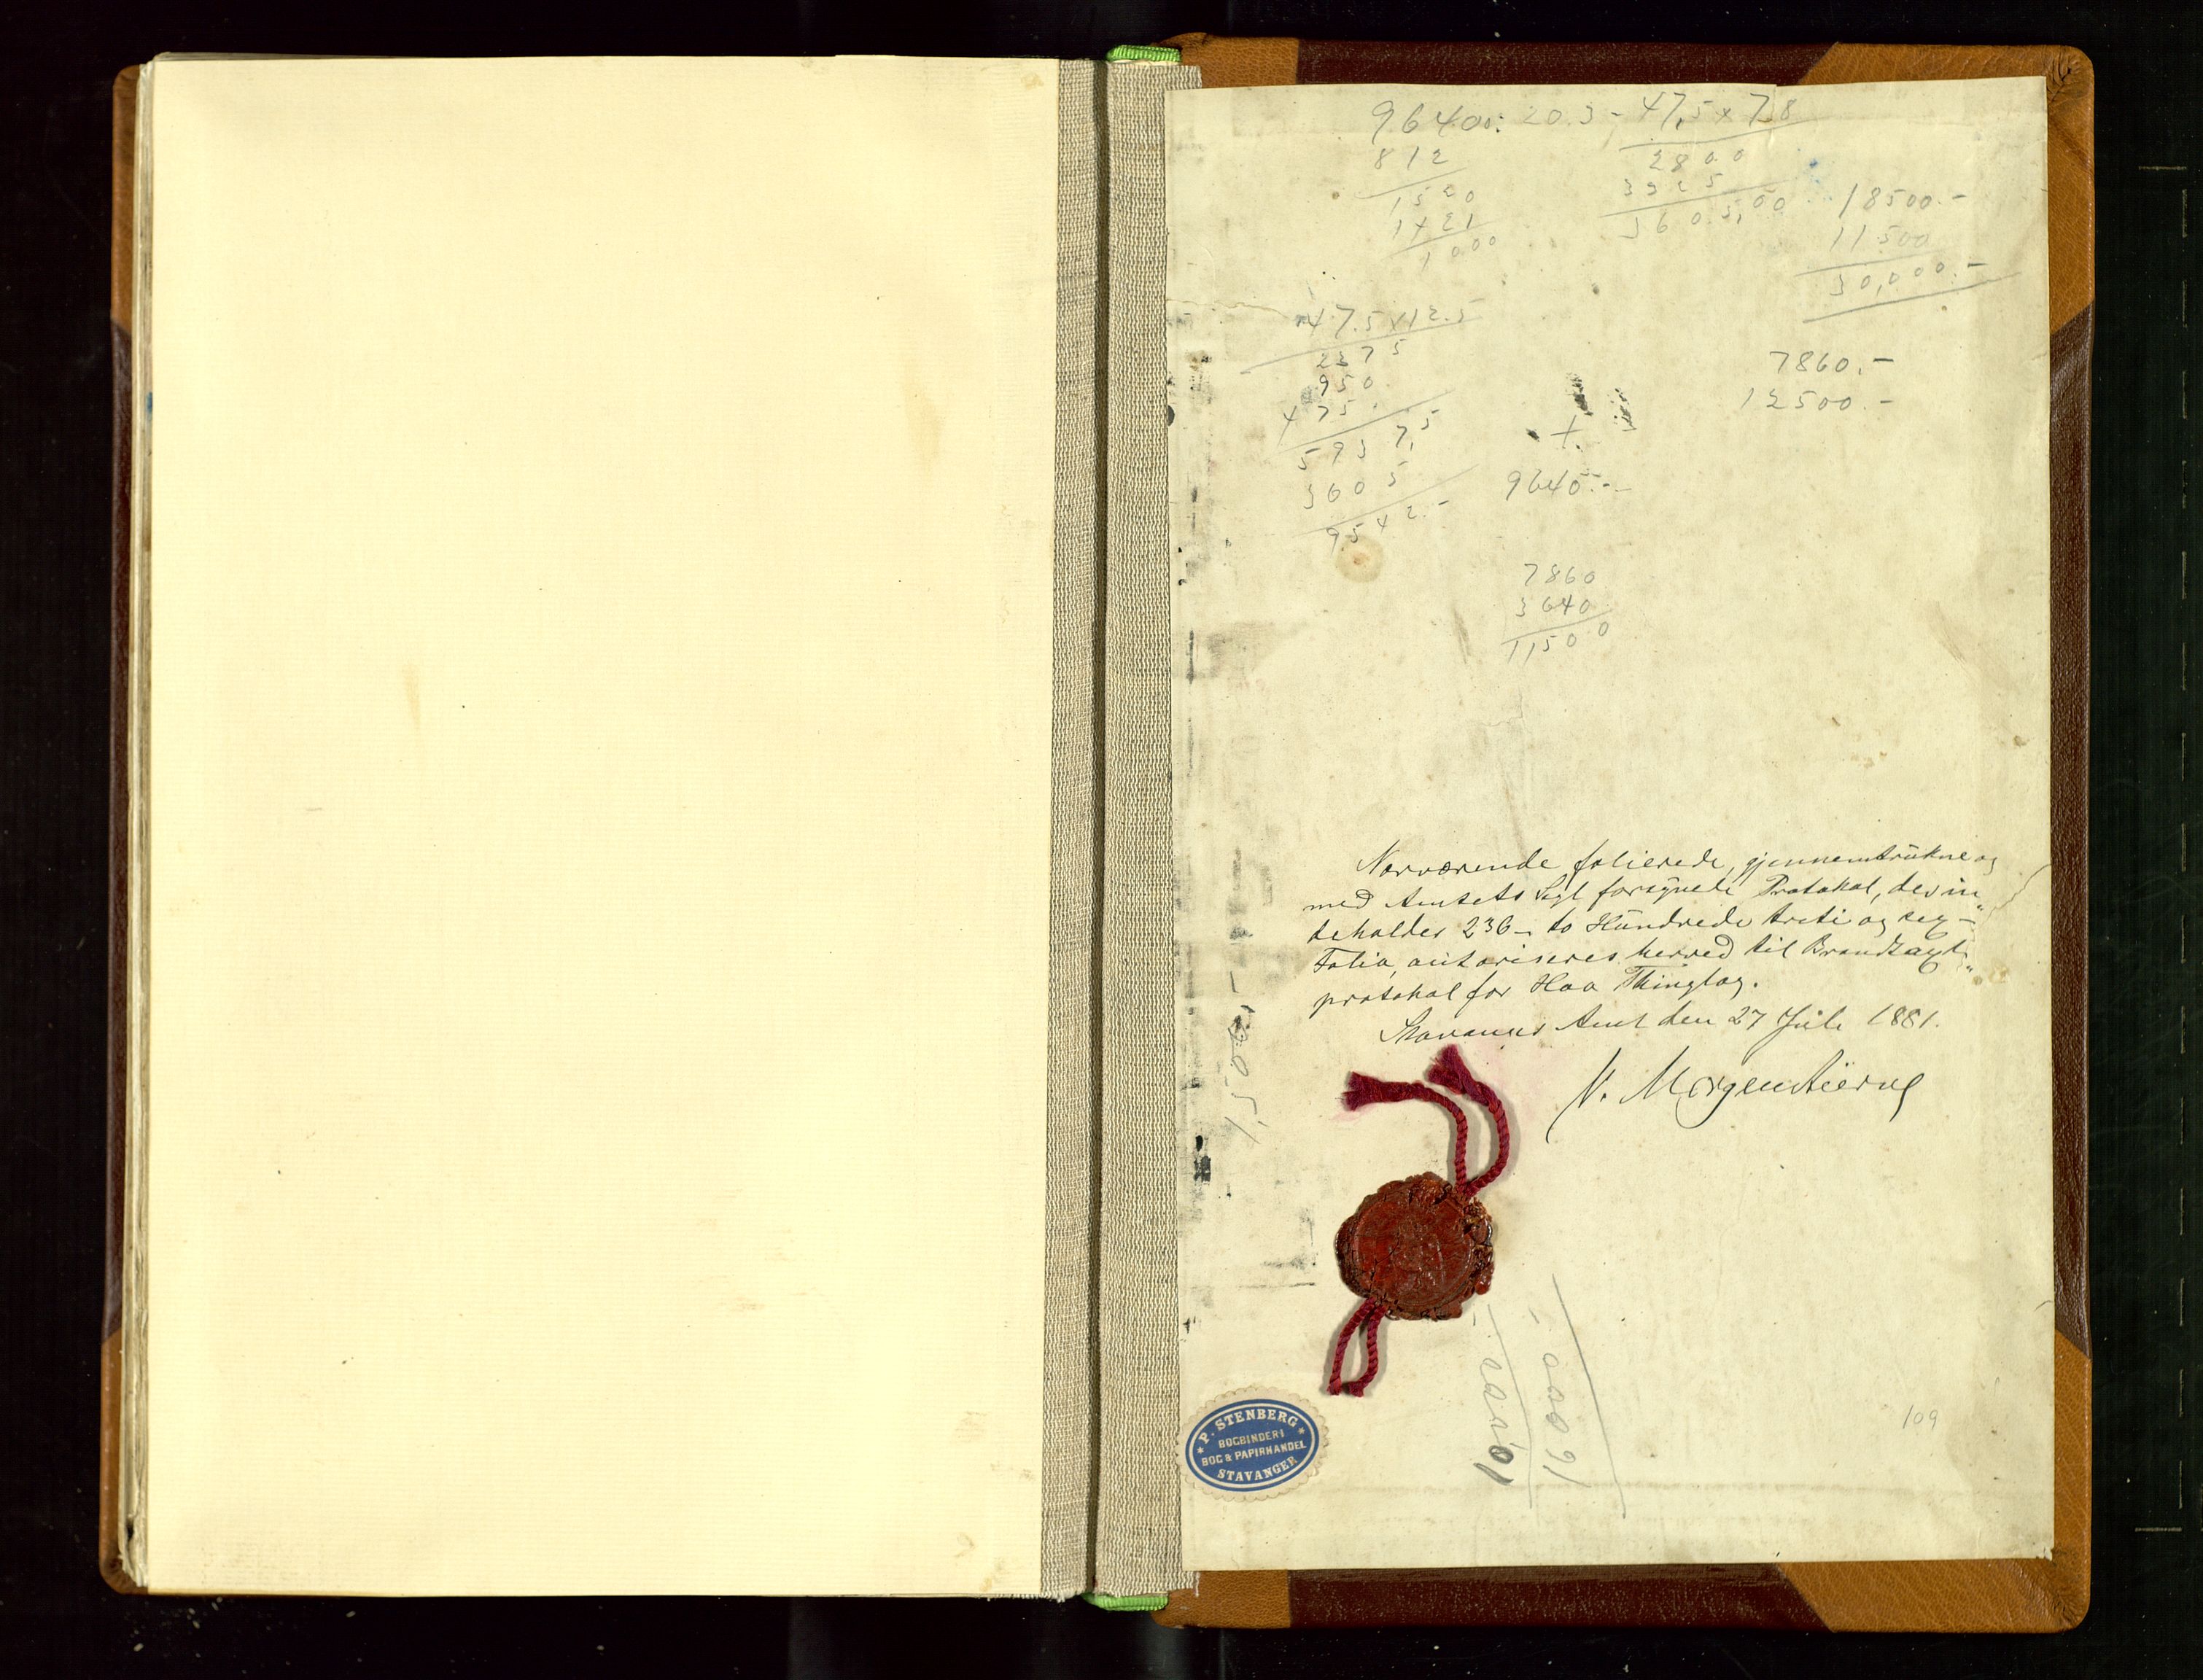 9640.00: 20.3 - 47,5 x 78
812
1520
1421
1000
2800
3325
3605,00
18500.-
11500
30,000.-
47.5 x 12.5
2375
950
475
5937,5
3605
9542.-
7860.-
12500.-
+.
9640.-
7860
3640
11500
Nærværende folierede, gjennemtrukne og
med Amtets Segl forsynede Protokol, der in„
deholder 236 - to Hundrede treti og sex -
Folio, autoriseres herved til Brandtaxt„
protokol for Haa Thinglag.
Stavanger Amt den 27 Juli 1881.
V. Morgenstierne
16000.-
109
P. STENBERG
BOGBINDERI
BOG & PAPIRHANDEL
STAVANGER